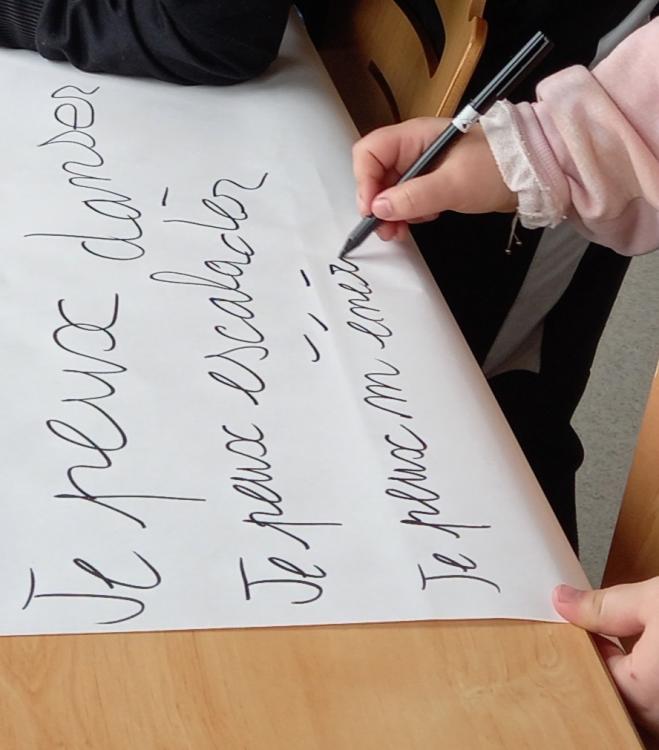 Je peux danser
Je peux escalader
Je peux m'éner